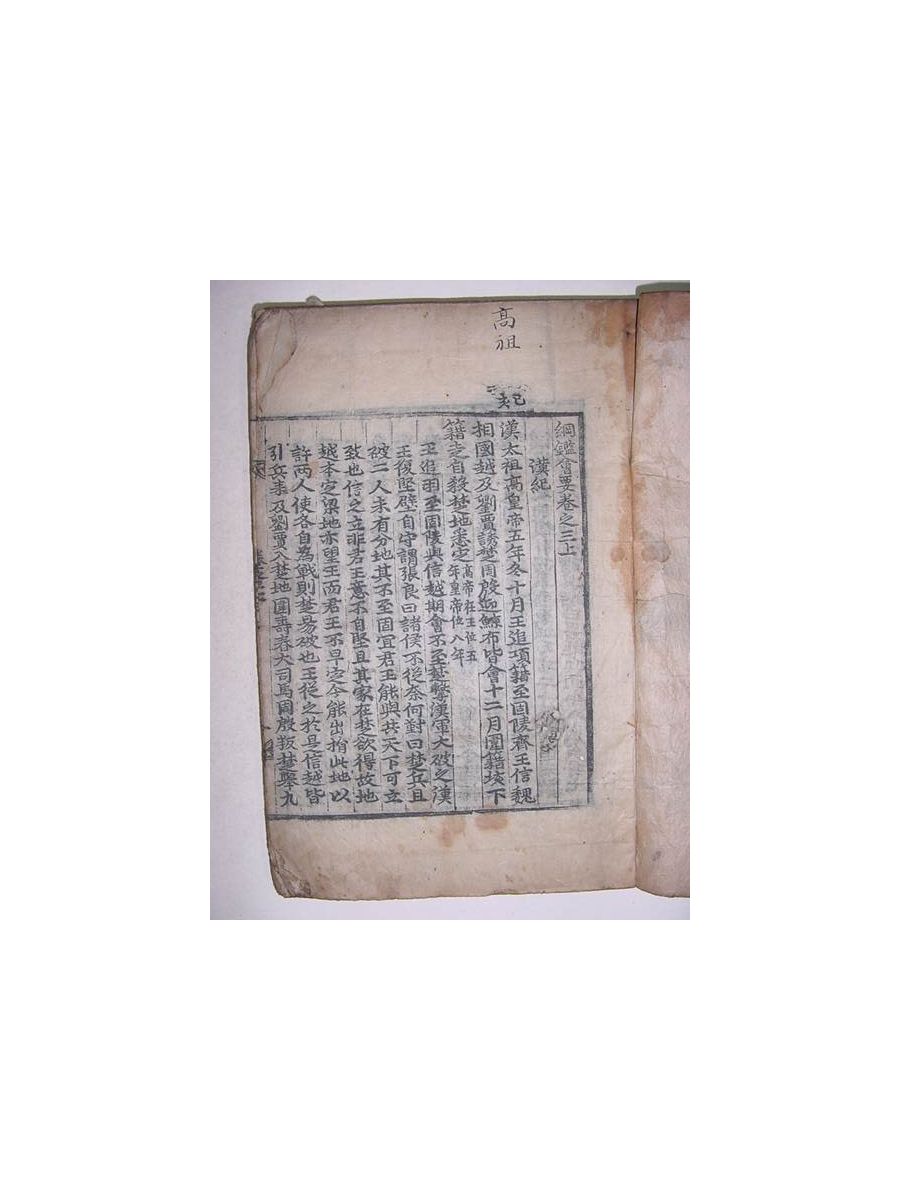 高祖
己亥
綱鑑會要卷之三上
漢紀
漢太祖高皇帝五年冬十月王追項籍至固陵齊王信魏
相國越及劉賈誘楚周殷迎鯨布皆會十二月圍籍垓下
籍走自殺楚地悉定高帝在王位五年皇帝位八年
王追羽至固陵與信越期會不至楚擊漢軍大破之漢
王復堅壁自守謂張良曰諸侯不從奈何對曰楚兵且
破二人未有分地其不至固宜君王能與共天下可立
致也信之立非君王意不自堅且其家在楚欲得故地
越本定梁地亦望王而君王不早定今能出捐此地以
許两人使各自為戰則楚易破也王從之於是信越皆
引兵来及劉賈入楚地圍壽春大司馬周殷叛楚舉九